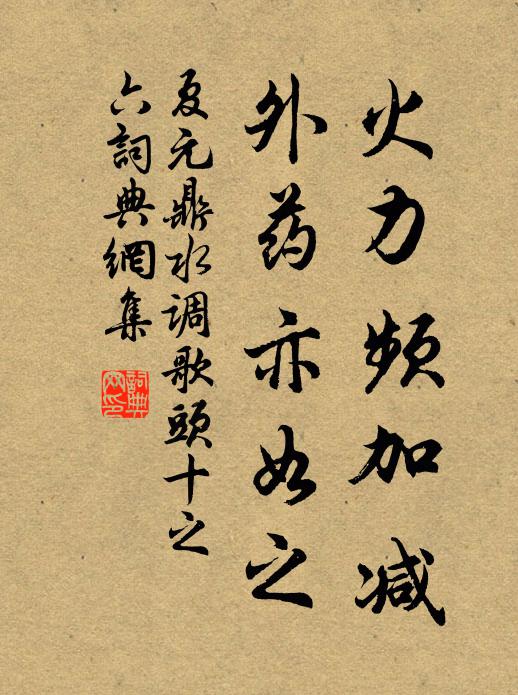 火力频加减
外药亦如之
夏元鼎水调歌頭十之
六詞典網集
詞典網印